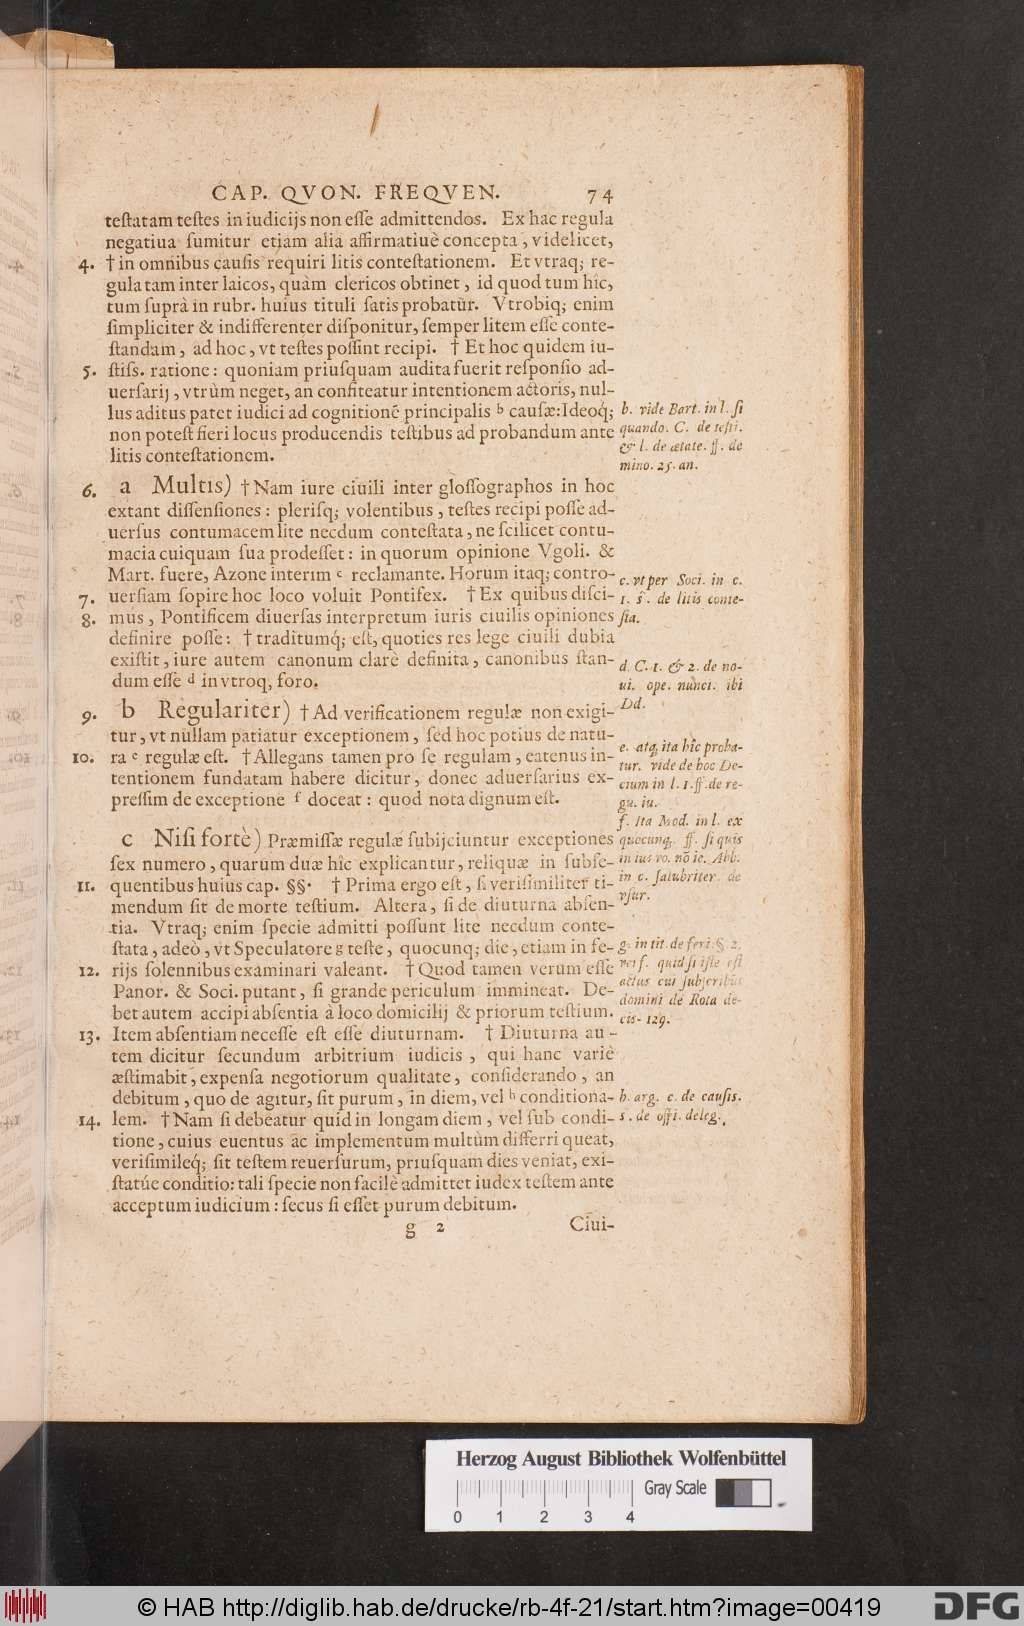 CAP. QVON. FREQVEN. 74
teſtatam teſtes in iudicijs non eſſe admittendos. Ex hac regula
negatiua ſumitur etiam alia affirmatiuè concepta, videlicet,
4. † in omnibus cauſis requiri litis conteſtationem. Et vtraq; re-
gula tam inter laicos, quàm clericos obtinet, id quod tum hîc,
tum ſuprà in rubr. huius tituli ſatis probatùr. Vtrobiq; enim
ſimpliciter & indifferenter diſponitur, ſemper litem eſſe conte-
ſtandam, ad hoc, vt teſtes poſſint recipi. † Et hoc quidem iu-
5. ſtiſs. ratione: quoniam priuſquam audita fuerit reſponſio ad-
uerſarij, vtrùm neget, an confiteatur intentionem actoris, nul-
lus aditus patet iudici ad cognitionẽ principalis b cauſæ: Ideoq́;
non poteſt fieri locus producendis teſtibus ad probandum ante
litis conteſtationem.
b. vide Bart. in l. ſi
quando. C. de teſti.
& l. de ætate. ff. de
mino. 25. an.
6. a Multis) † Nam iure ciuili inter gloſſographos in hoc
extant diſſenſiones: pleriſq; volentibus, teſtes recipi poſſe ad-
uerſus contumacem lite necdum conteſtata, ne ſcilicet contu-
macia cuiquam ſua prodeſſet: in quorum opinione Vgoli. &
Mart. fuere, Azone interim c reclamante. Horum itaq; contro-
7. uerſiam ſopire hoc loco voluit Pontifex. † Ex quibus diſci-
8. mus, Pontificem diuerſas interpretum iuris ciuilis opiniones
definire poſſe: † traditumq́; eſt, quoties res lege ciuili dubia
exiſtit, iure autem canonum clarè definita, canonibus ſtan-
dum eſſe d in vtroq; foro.
c. vt per Soci. in c.
1. ſ. de litis conte-
ſta.
d. C. 1. & 2. de no-
ui. ope. nunci. ibi
Dd.
9. b Regulariter) † Ad verificationem regulæ non exigi-
tur, vt nullam patiatur exceptionem, ſed hoc potius de natu-
10. ra e regulæ eſt. † Allegans tamen pro ſe regulam, eatenus in-
tentionem fundatam habere dicitur, donec aduerſarius ex-
preſſim de exceptione f doceat: quod nota dignum eſt.
e. atq; ita hîc proba-
tur. vide de hoc De-
cium in l. 1. ff. de re-
gu. iu.
f. Ita Mod. in l. ex
quocunq; ff. ſi quis
in ius vo. nō ie. Abb.
in c. ſalubriter. de
vſur.
c Niſi fortè) Præmiſſæ regulæ ſubijciuntur exceptiones
ſex numero, quarum duæ hîc explicantur, reliquæ in ſubſe-
11. quentibus huius cap. §§. † Prima ergo eſt, ſi veriſimiliter ti-
mendum ſit de morte teſtium. Altera, ſi de diuturna abſen-
tia. Vtraq; enim ſpecie admitti poſſunt lite necdum conte-
ſtata, adeò, vt Speculatore g teſte, quocunq; die, etiam in fe-
12. rijs ſolennibus examinari valeant. † Quod tamen verum eſſe
Panor. & Soci. putant, ſi grande periculum immineat. De-
bet autem accipi abſentia à loco domicilij & priorum teſtium.
13. Item abſentiam neceſſe eſt eſſe diuturnam. † Diuturna au-
tem dicitur ſecundum arbitrium iudicis, qui hanc variè
æſtimabit, expenſa negotiorum qualitate, conſiderando, an
debitum, quo de agitur, ſit purum, in diem, vel h conditiona-
14. lem. † Nam ſi debeatur quid in longam diem, vel ſub condi-
tione, cuius euentus ac implementum multùm differri queat,
veriſimileq́; ſit teſtem reuerſurum, priuſquam dies veniat, exi-
ſtatúe conditio: tali ſpecie non facilè admittet iudex teſtem ante
acceptum iudicium: ſecus ſi eſſet purum debitum.
g. in tit. de feri. §. 2.
verſ. quid ſi iſte eſt
actus cui ſubſcribūt
domini de Rota de-
cis. 129.
h. arg. c. de cauſis.
s. de offi. deleg.
g 2 Ciui-
Herzog August Bibliothek Wolfenbüttel
Gray Scale
0 1 2 3 4
© HAB http://diglib.hab.de/drucke/rb-4f-21/start.htm?image=00419
DFG